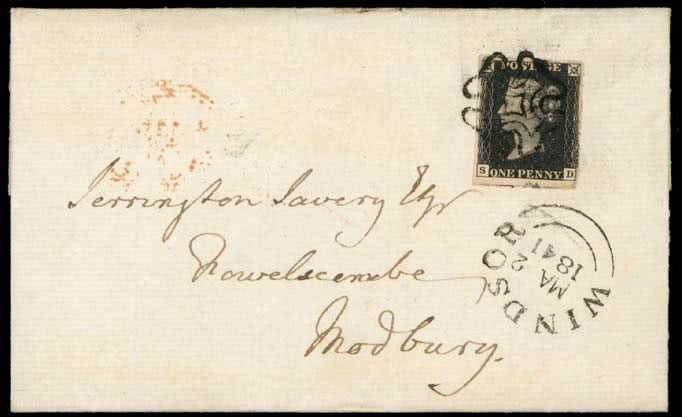 POSTAGE
S ONE PENNY D
Servington Savery Esqr
Modbury.
WINDSOR
MA 2
1841